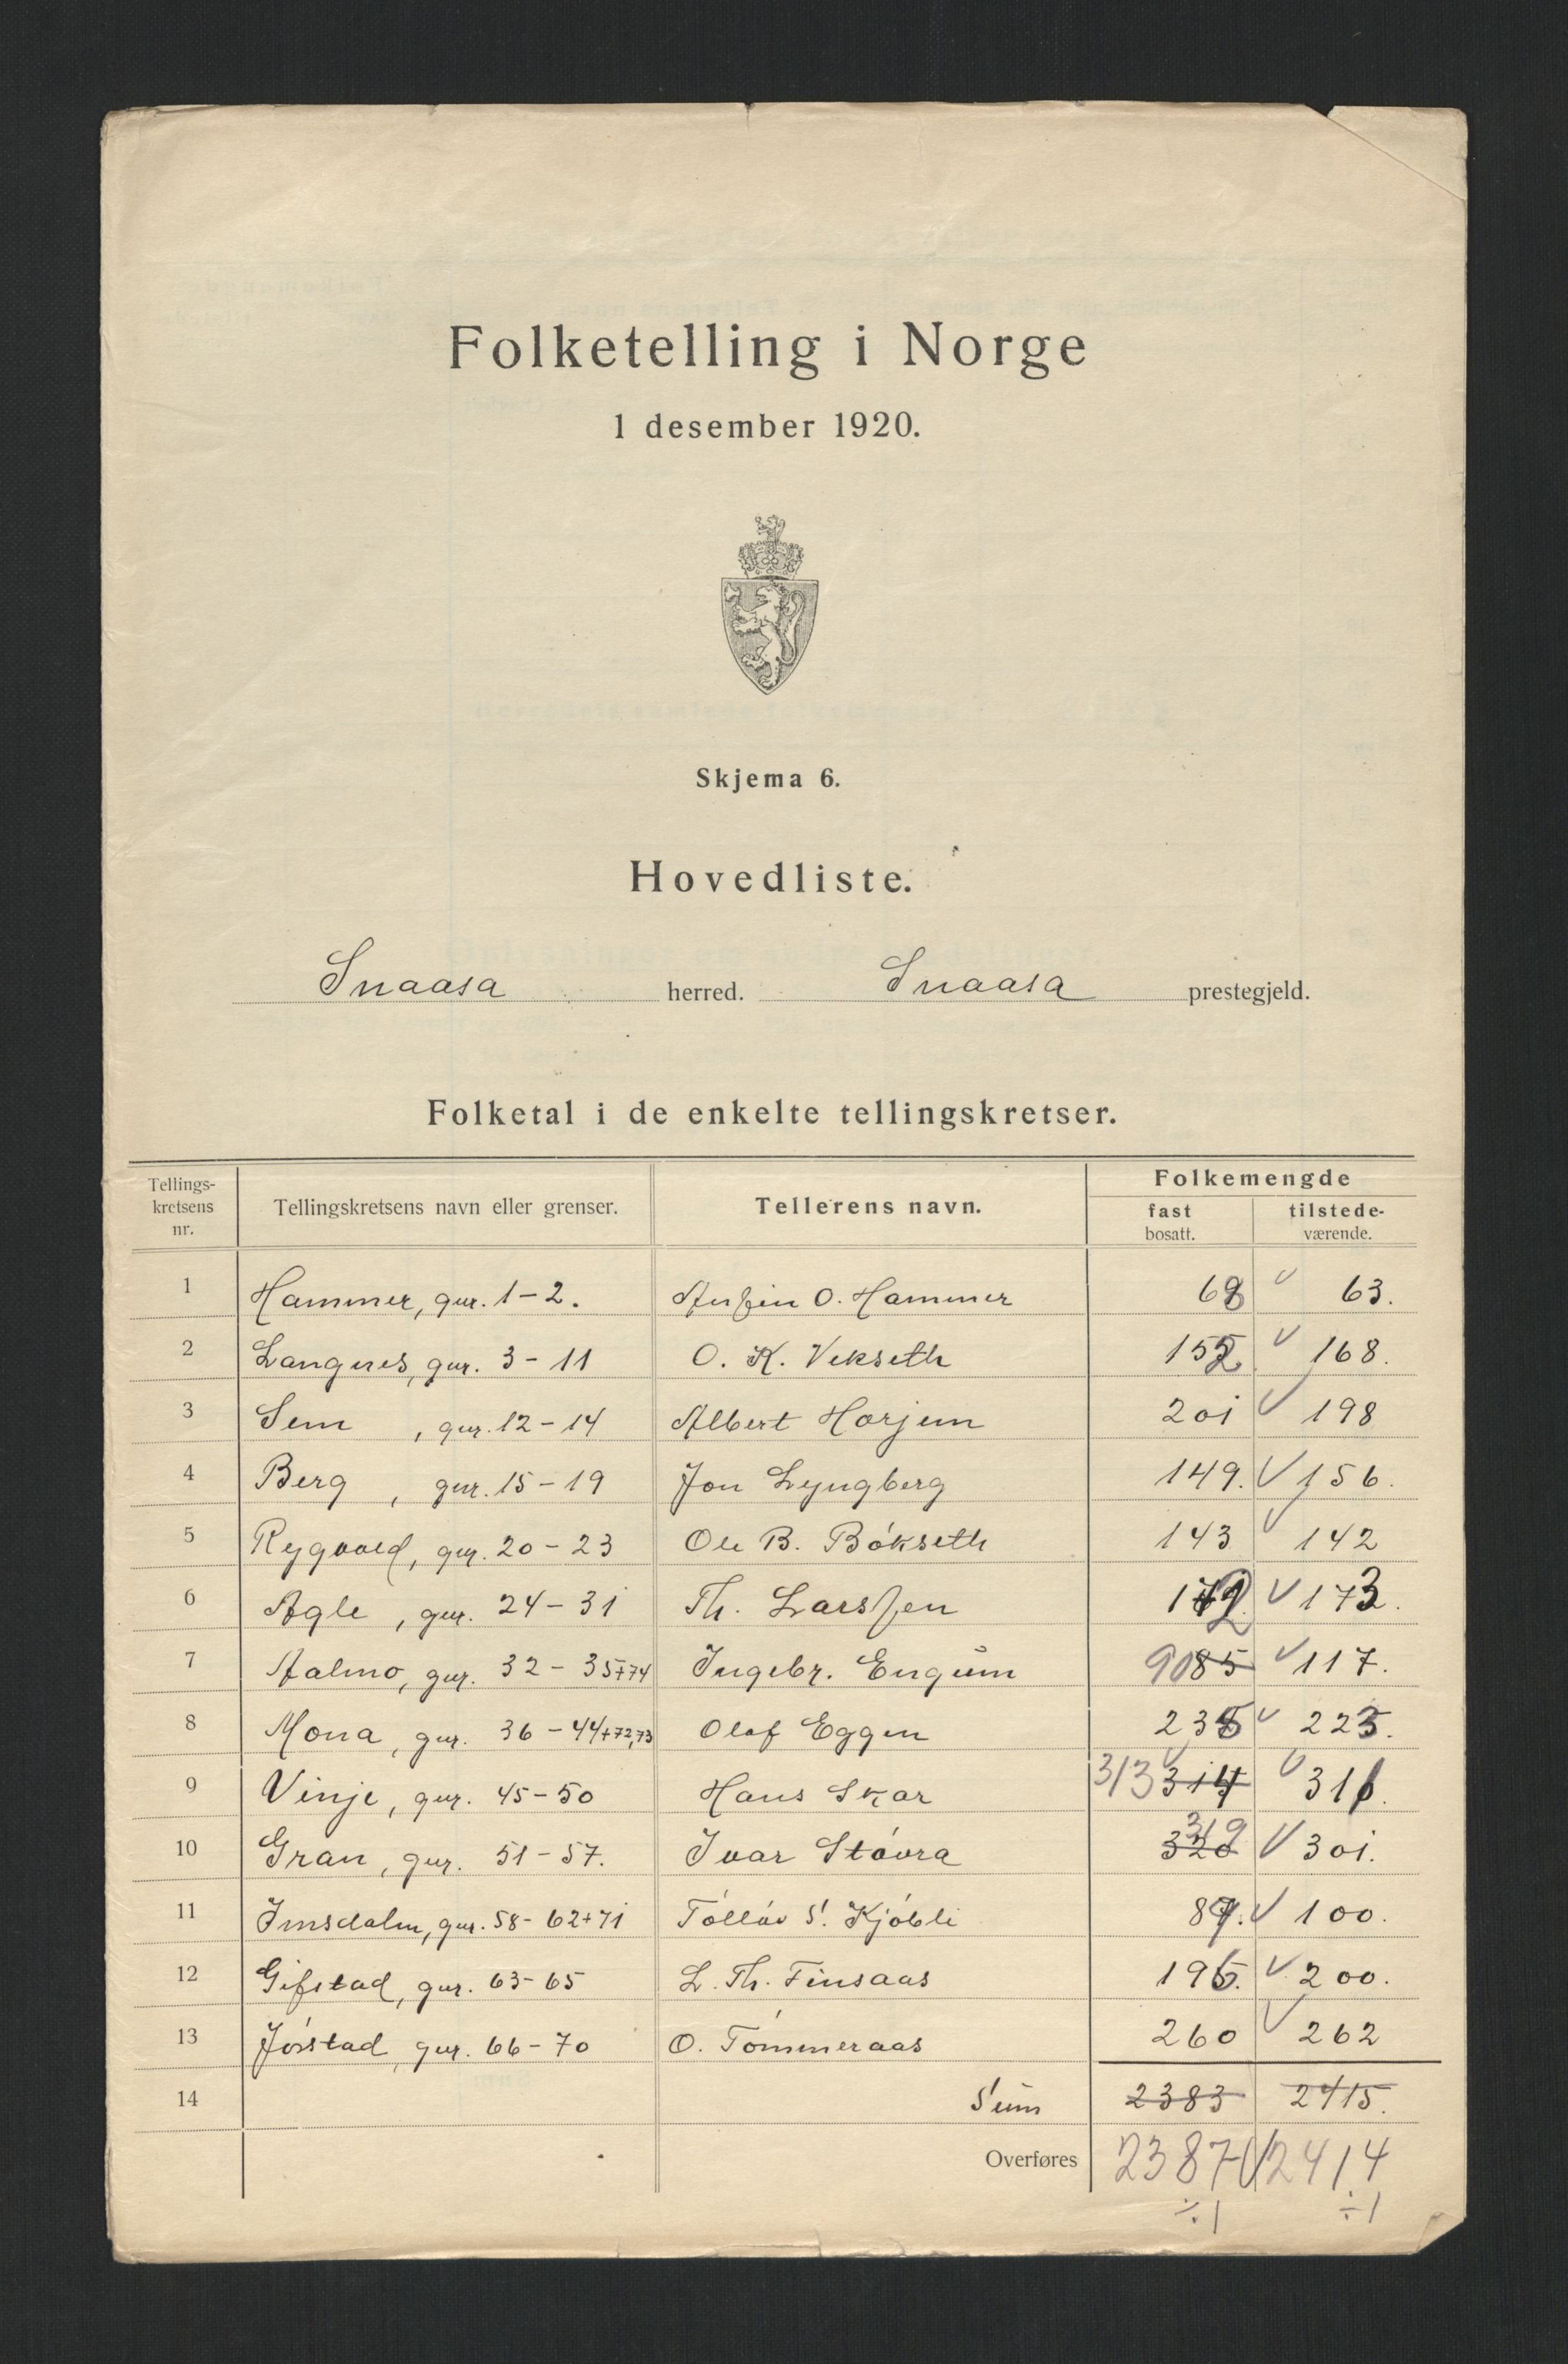 Folketelling i Norge
1 desember 1920.
Skjema 6.
Hovedliste.
Snaasa herred. Snaasa prestegjeld.
Folketal i de enkelte tellingskretser.
Tellings-kretsens nr. Tellingskretsens navn eller grenser. Tellerens navn. Folkemengde
fast bosatt. tilstede-værende.
1 Hammer, gnr. 1-2. Anfin O. Hammer 68 63.
2 Langnes, gnr. 3-11 O. K. Vekseth 152 168.
3 Sem, gnr. 12-14 Albert Horjem 201 198
4 Berg, gnr. 15-19 Jon Lyngberg 149. 156.
5 Rygvold, gnr. 20-23 Ole B. Bökseth 143 142
6 Agle, gnr. 24-31 Th. Larssen 173.
7 Aalmo, gnr. 32-35+74 Ingebr. Engum 90 85 117.
8 Mona, gnr. 36-44+72,73 Olaf Eggen 223.
9 Vinje, gnr. 45-50 Hans Skar 313 314
10 Gran, gnr. 51-57. Ivar Stövra 319 320 301.
11 Imsdalen, gnr. 58-62+71 S. Kjöbli 100.
12 Gifstad, gnr. 63-65 L. Th. Finsaas 200.
13 Jörstad, gnr. 66-70 O. Tömmeraas 260 262
14 Sum 2383 2415.
Overføres 2387 2414
÷1 ÷1